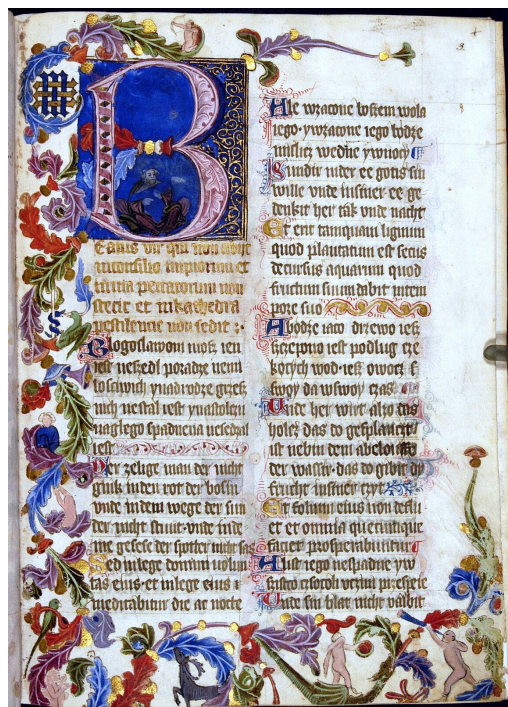 B
Eatus vir qui non abiit
in consilio impiorum et
in via peccatorum non
stetit et in kathedra
pestilencie non sedit
Slogoslawoni møsz ien
iest neszedl po radze nem
iloscywich ynadrodze grzes
nich nestal iest ynastolczu
naglego spadnena nesedal
iest
Der zelige man der nicht
gink in den rot der bosin
vnde in dem wege der sun
der nicht stunt vnde in de
me gesese der spotter nicht sas
Sed in lege domini volun
tas eius et in lege eius
meditabitur die ac nocte
Ale wzacone boszem wola
iego ywzacone iego bødze
misliez wedne ywnocy
Sundir in der ee gotis sin
wille vnde in siner ee ge
denkit her tak vnde nacht
Et erit tamquam lignum
quod plantatum est secus
decursus aquarum quod
fructum suum dabit in tem
pore suo
A bødze iaco drzewo iesz
szczepono iest podlug cze
koczych wod iesz owocz s
swoy da wswoy czas
Unde her wirt alzo das
holcz das do gephlanczit
ist nebin dem abeloufe
der wassir das do gebit dy
frucht in siner czyt
Et folium eius non deflu
et et omnia quecumque
faciet prosperabuntur
A list iego nespadne yw
szistco czsocoli vczini przespeie
Unde sin blat nicht valbit